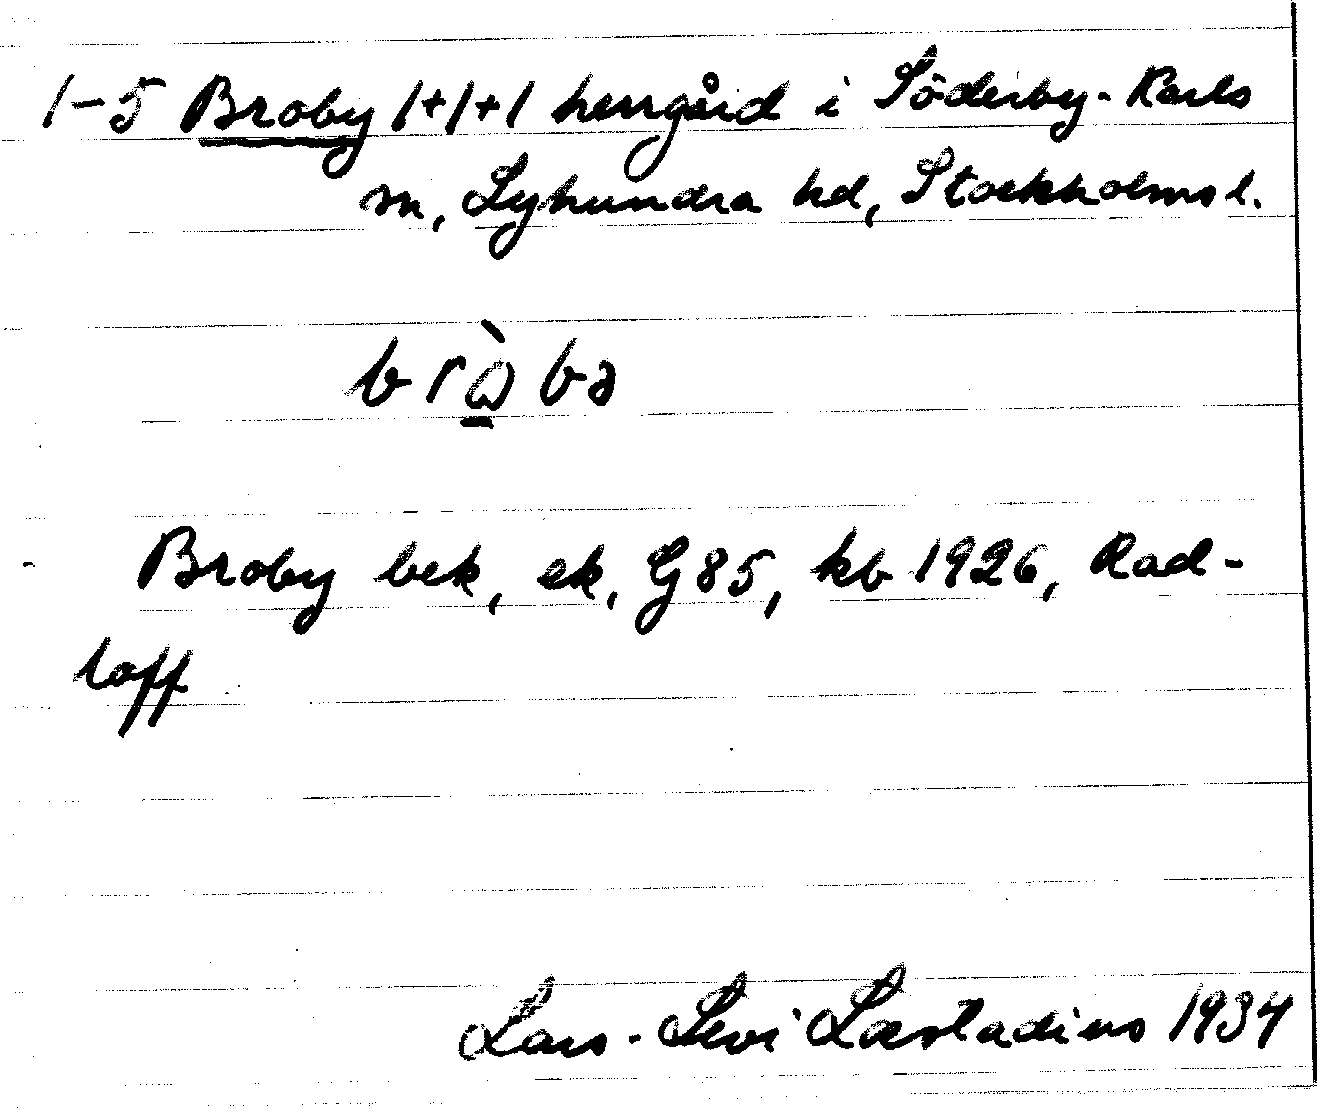 1-5 Broby 1+1+1 herrgård i Söderby-Karls
sn, Lyhundra hd, Stockholms l.
brò̱bə
Broby bek, ek, G85, kb 1926, Rad-
loff
Lars-Levi Læstadius 1934